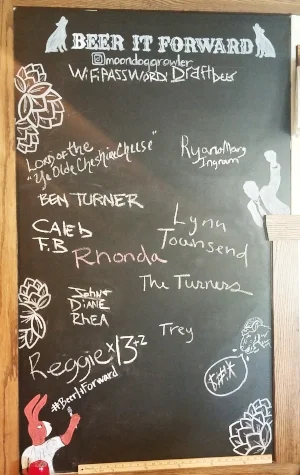 BEER IT FORWARD
@moondoggrowler
WiFi PASSWORD: Draftbeer
Lord of the
"Ye Olde Cheshire Cheese"
Ryan & Mary
Ingram
BEN TURNER
CALEB
F.B
Lynn
Townsend
Rhonda
The Turners
John &
DiANE
RHEA
Trey
Reggie x13+2
#BeerItForward
&#!*